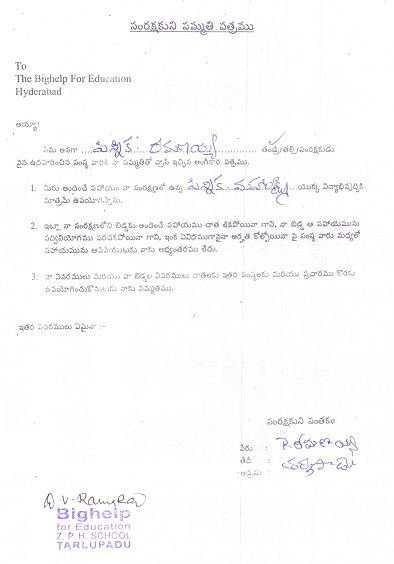 సంరక్షకుని సమ్మతి పత్రము
To
The Bighelp For Education
Hyderabad
అయ్యా!
నేను అనగా .... పిన్నిక రమణయ్య ............ తండ్రి/తల్లి/సంరక్షకుడు
పైన ఉదహరించిన సంస్థ వారికి నా సమ్మతితో వ్రాసి ఇచ్చిన అంగీకార పత్రము.
1. మీరు అందించే సహాయం నా సంరక్షణలో ఉన్న పిన్నిక మహాలక్ష్మి యొక్క విద్యాభివృద్ధికి
మాత్రమే ఉపయోగిస్తాను.
2. ఇట్లా నా సంరక్షణలోని బిడ్డకు అందించే సహాయము దాత లేకపోయినా గాని, నా బిడ్డ ఆ సహాయమును
సద్వినియోగము పరచకపోయినా గాని, ఇంక ఏవిధముగానైనా అర్హత కోల్పోయినా పై సంస్థ వారు మధ్యలో
సహాయమును ఆపివేయుటకు నాకు అభ్యంతరము లేదు.
3. నా వివరములు మరియు నా బిడ్డల వివరములు దాతలకు ఇతర సంస్థలకు మరియు ప్రచారము కొరకు
ఉపయోగించుకొనుటకు నాకు సమ్మతము.
ఇతర వివరములు ఏమైనా :-
సంరక్షకుని సంతకం
పేరు : P. రమణయ్య
తేదీ :
అడ్రసు : తర్లుపాడు
D. V.
Bighelp
for Education
Z. P. H. SCHOOL
TARLUPADU